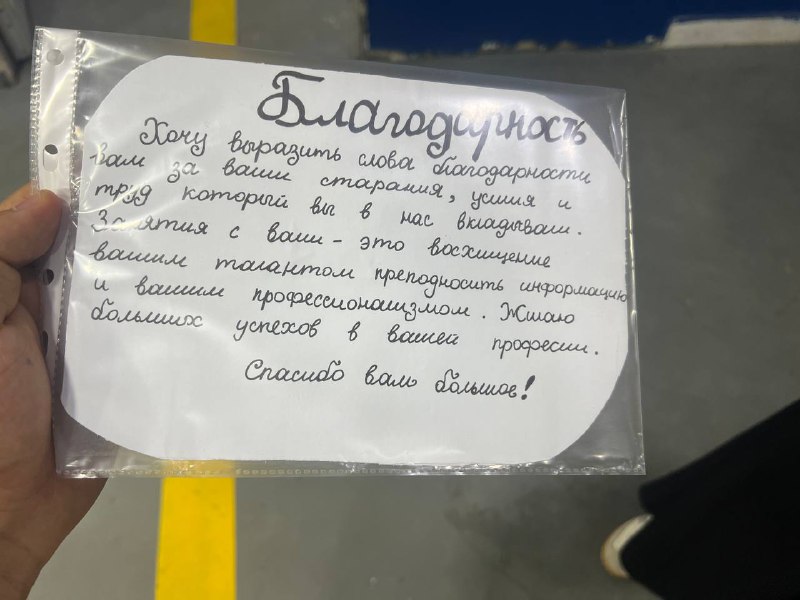 Благодарность
Хочу выразить слова благодарности
вам за ваши старания, усилия и
труд который вы в нас вкладываи.
Занятия с вами - это восхищение
вашим талантом преподносить информацию
и вашим профессионализмом. Желаю
больших успехов в вашей професии.
Спасибо вам большое!